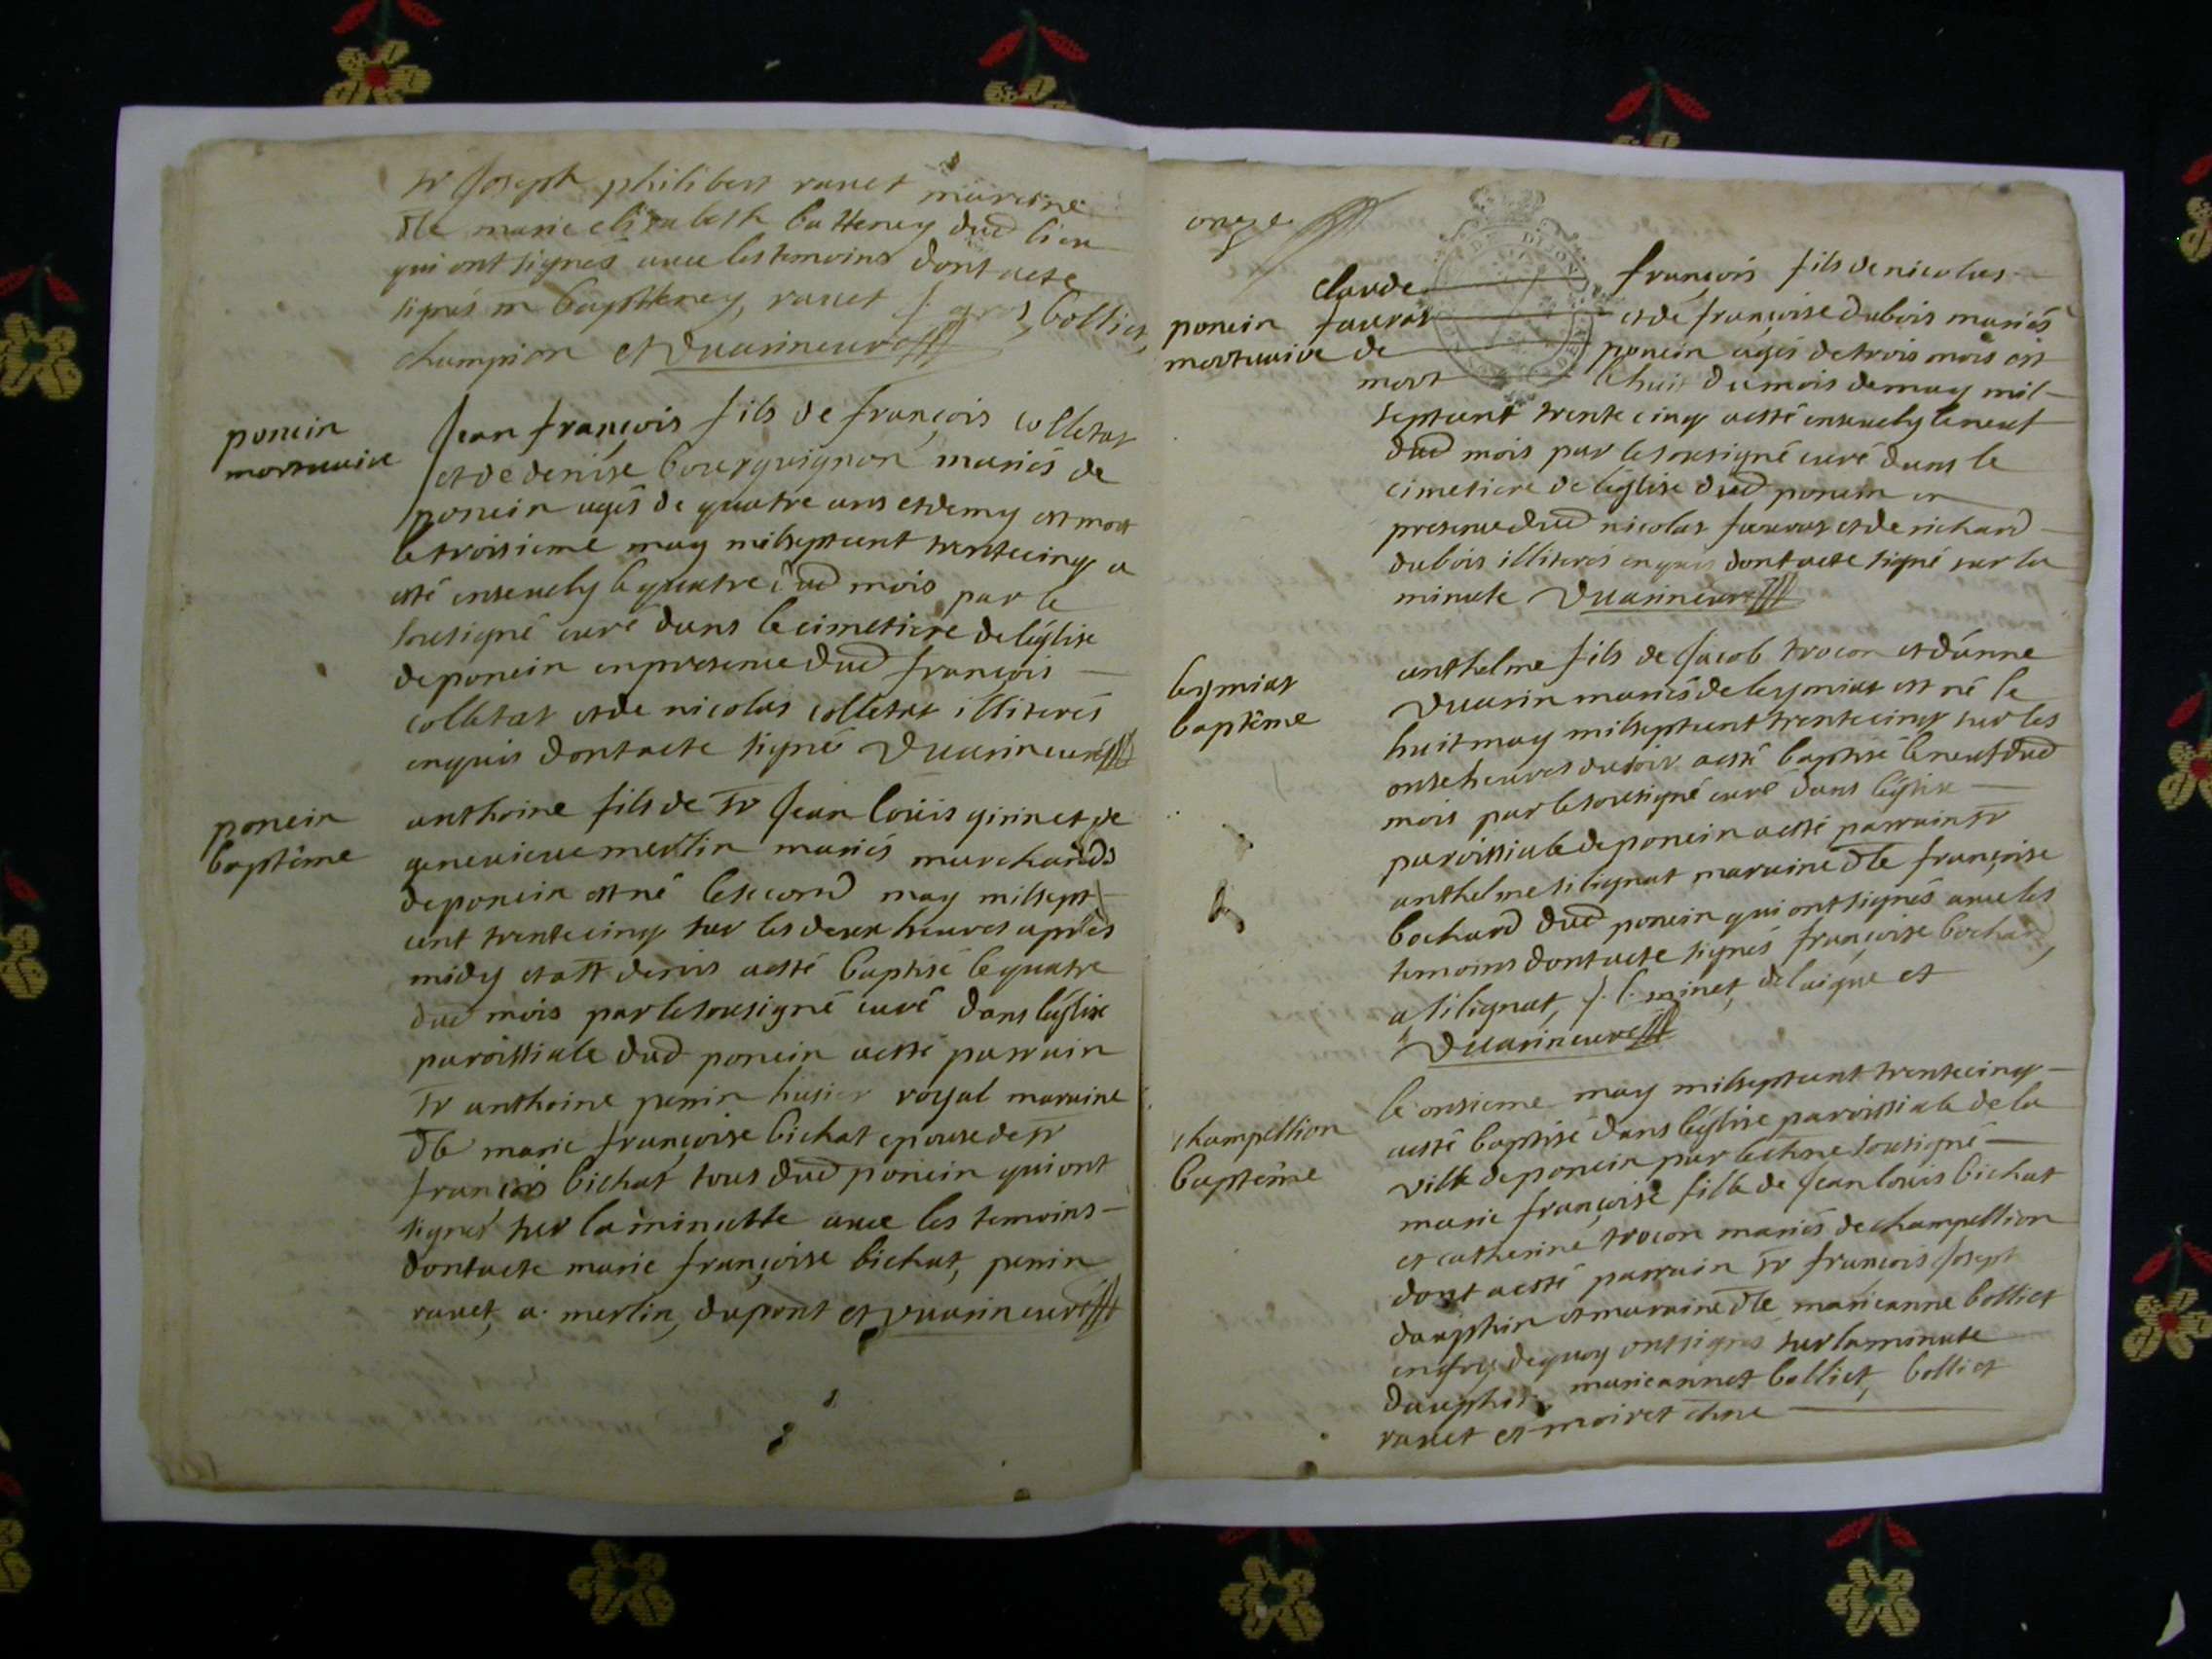 sr Joseph philibert ravet maraine
dlle marie elizabeth batteney dud lieu
qui ont signés avec les temoins dont acte
signés m baptteney, ravet j. gros, bolliet,
champion et Duarin curé
poncin
mortuaire
Jean françois fils de françois colletat
et de denise bourguignon mariés de
poncin agés de quatre ans et demy est mort
le troisieme may milseptcent trentecinq a
esté ensevely le quatre dud mois par le
sousigné curé dans le cimetiere de léglise
de poncin en presence dud françois
colletat et de nicolas colletat illiterés
enquis dont acte signé Duarin curé
poncin
baptême
anthoine fils de sr Jean loüis girinet de
genevieve merlin mariés marchands
de poncin est né le second may milsept
cent trentecinq sur les deux heures après
midy et att denis a esté baptisé le quatre
dud mois par le sousigné curé dans léglise
paroissiale dud poncin a esté parrain
sr anthoine perrin husier royal maraine
dlle marie françoise bichat epouse de sr
françois bichat tous dud poncin qui ont
signés sur la minutte avec les temoins
dont acte marie françoise bichat, perrin
ravet, a. merlin, dupont et Duarin curé
onze
poncin
mortuaire
claude françois fils de nicolas
favrat et de françoise dubois mariés
de poncin agés de trois mois est
mort le huit du mois de may mil
septcent trente cinq a esté ensevely le neuf
dud mois par le sousigné curé dans le
cimetiere de léglise dud poncin en
presence dud nicolas favrat et de richard
dubois illiterés enquis dont acte signé sur la
minute Duarin curé
leymiat
baptême
anthelme fils de Jacob trocon et dánne
Duarin mariés de leymiat est né le
huit may milseptcent trentecinq sur les
onse heures du soir a esté baptisé le neuf dud
mois par le sousigné curé dans léglise
paroissiale de poncin a esté parrain sr
anthelme silignat maraine dlle françoise
bochard dud poncin qui ont signés avec les
temoins dont acte signés françoise bochard,
a silignat, j. l. minet, delaigue et
Duarin curé
champellion
baptême
le onsieme may milseptcent trentecinq
a esté baptisé dans léglise paroissiale de la
ville de poncin par le chne sousigné
marie françoise fille de Jean loüis bichat
et catherine trocon mariés de champellion
dont a esté parrain sr françois Josept
dauphin et maraine dlle marieanne bolliet
en foy de quoy ont signés sur la minute
dauphin, marieannet bolliet, bolliet
ravet et moiret chne